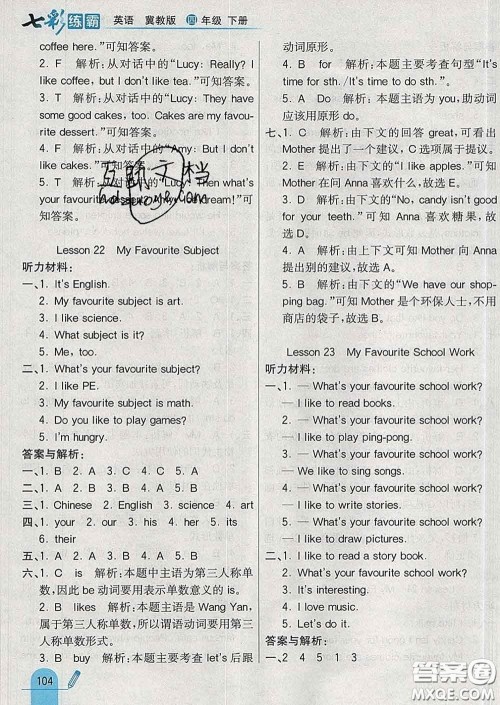 七彩练霸 英语 冀教版 四年级 下册
coffee here."可知答案。
2. F 解析：从对话中的"Lucy: Really? I
like coffee, but I don't like tea."可知答案。
3. T 解析：从对话中的"Lucy: They have
some good cakes, too. Cakes are my favou-
rite dessert."可知答案。
4. F 解析：从对话中的"Amy: But I don't
like cakes."可知答案。
5. T 解析：从对话中的"Lucy: Then what's
your favourite dessert? Amy: cream!"可
知答案。
Lesson 22 My Favourite Subject
听力材料：
一、1. It's English.
2. My favourite subject is art.
3. I like science.
4. What subject is it?
5. Me, too.
二、1. What's your favourite subject?
2. I like PE.
3. My favourite subject is math.
4. Do you like to play games?
5. I'm hungry.
答案与解析：
一、1. B 2. A 3. C 4. C 5. A
二、1. B 2. A 3. A 4. B 5. A
三、1. Chinese 2. English 3. science 4. art
四、1. your 2. our 3. his 4. her 5. its
6. their
六、1. C is 解析：本题中主语为第三人称单
数，因此be动词要用第三人称单数形式。
2. B likes 解析：本题主语是Wang Yan，
属于第三人称单数，所以谓语动词要用第
三人称单数形式。
3. B buy 解析：本题主要考查let's后跟
动词原形。
4. B for 解析：本题主要考查句型"It's
time for sth./It's time to do sth."。
5. A Do 解析：本题主语为you，助动词
应该用原形do。
七、1. C 解析：由下文的回答great，可看出
Mother提出了一个建议，C选项属于提议。
2. E 解析：由下文的"I like candy"可知
Mother在问Anna喜欢什么，故选E。
3. D 解析：由下文的"No, candy isn't good
for your teeth."可知，Anna喜欢糖果，故
选D。
4. A 解析：由上下文可知Mother向Anna
提出别的建议，故选A。
5. B 解析：由上文的"We have our shop-
ping bag."可知Mother是个环保人士，不用
商店的袋子，故选B。
Lesson 23 My Favourite School Work
听力材料：
一、1. — What's your favourite school work?
— I like to read books.
2. — What's your favourite school work?
— I like to play ping-pong.
3. — What's your favourite school work?
— We like to sing songs.
4. — What's your favourite school work?
— I like to write stories.
5. — What's your favourite school work?
— I like to draw pictures.
二、1. I like to read a story book.
2. What's your favourite school work?
3. It's interesting.
4. I love music.
5. I like to get online.
答案与解析：
一、2 4 5 1 3
104
答案圈
MXQE.COM